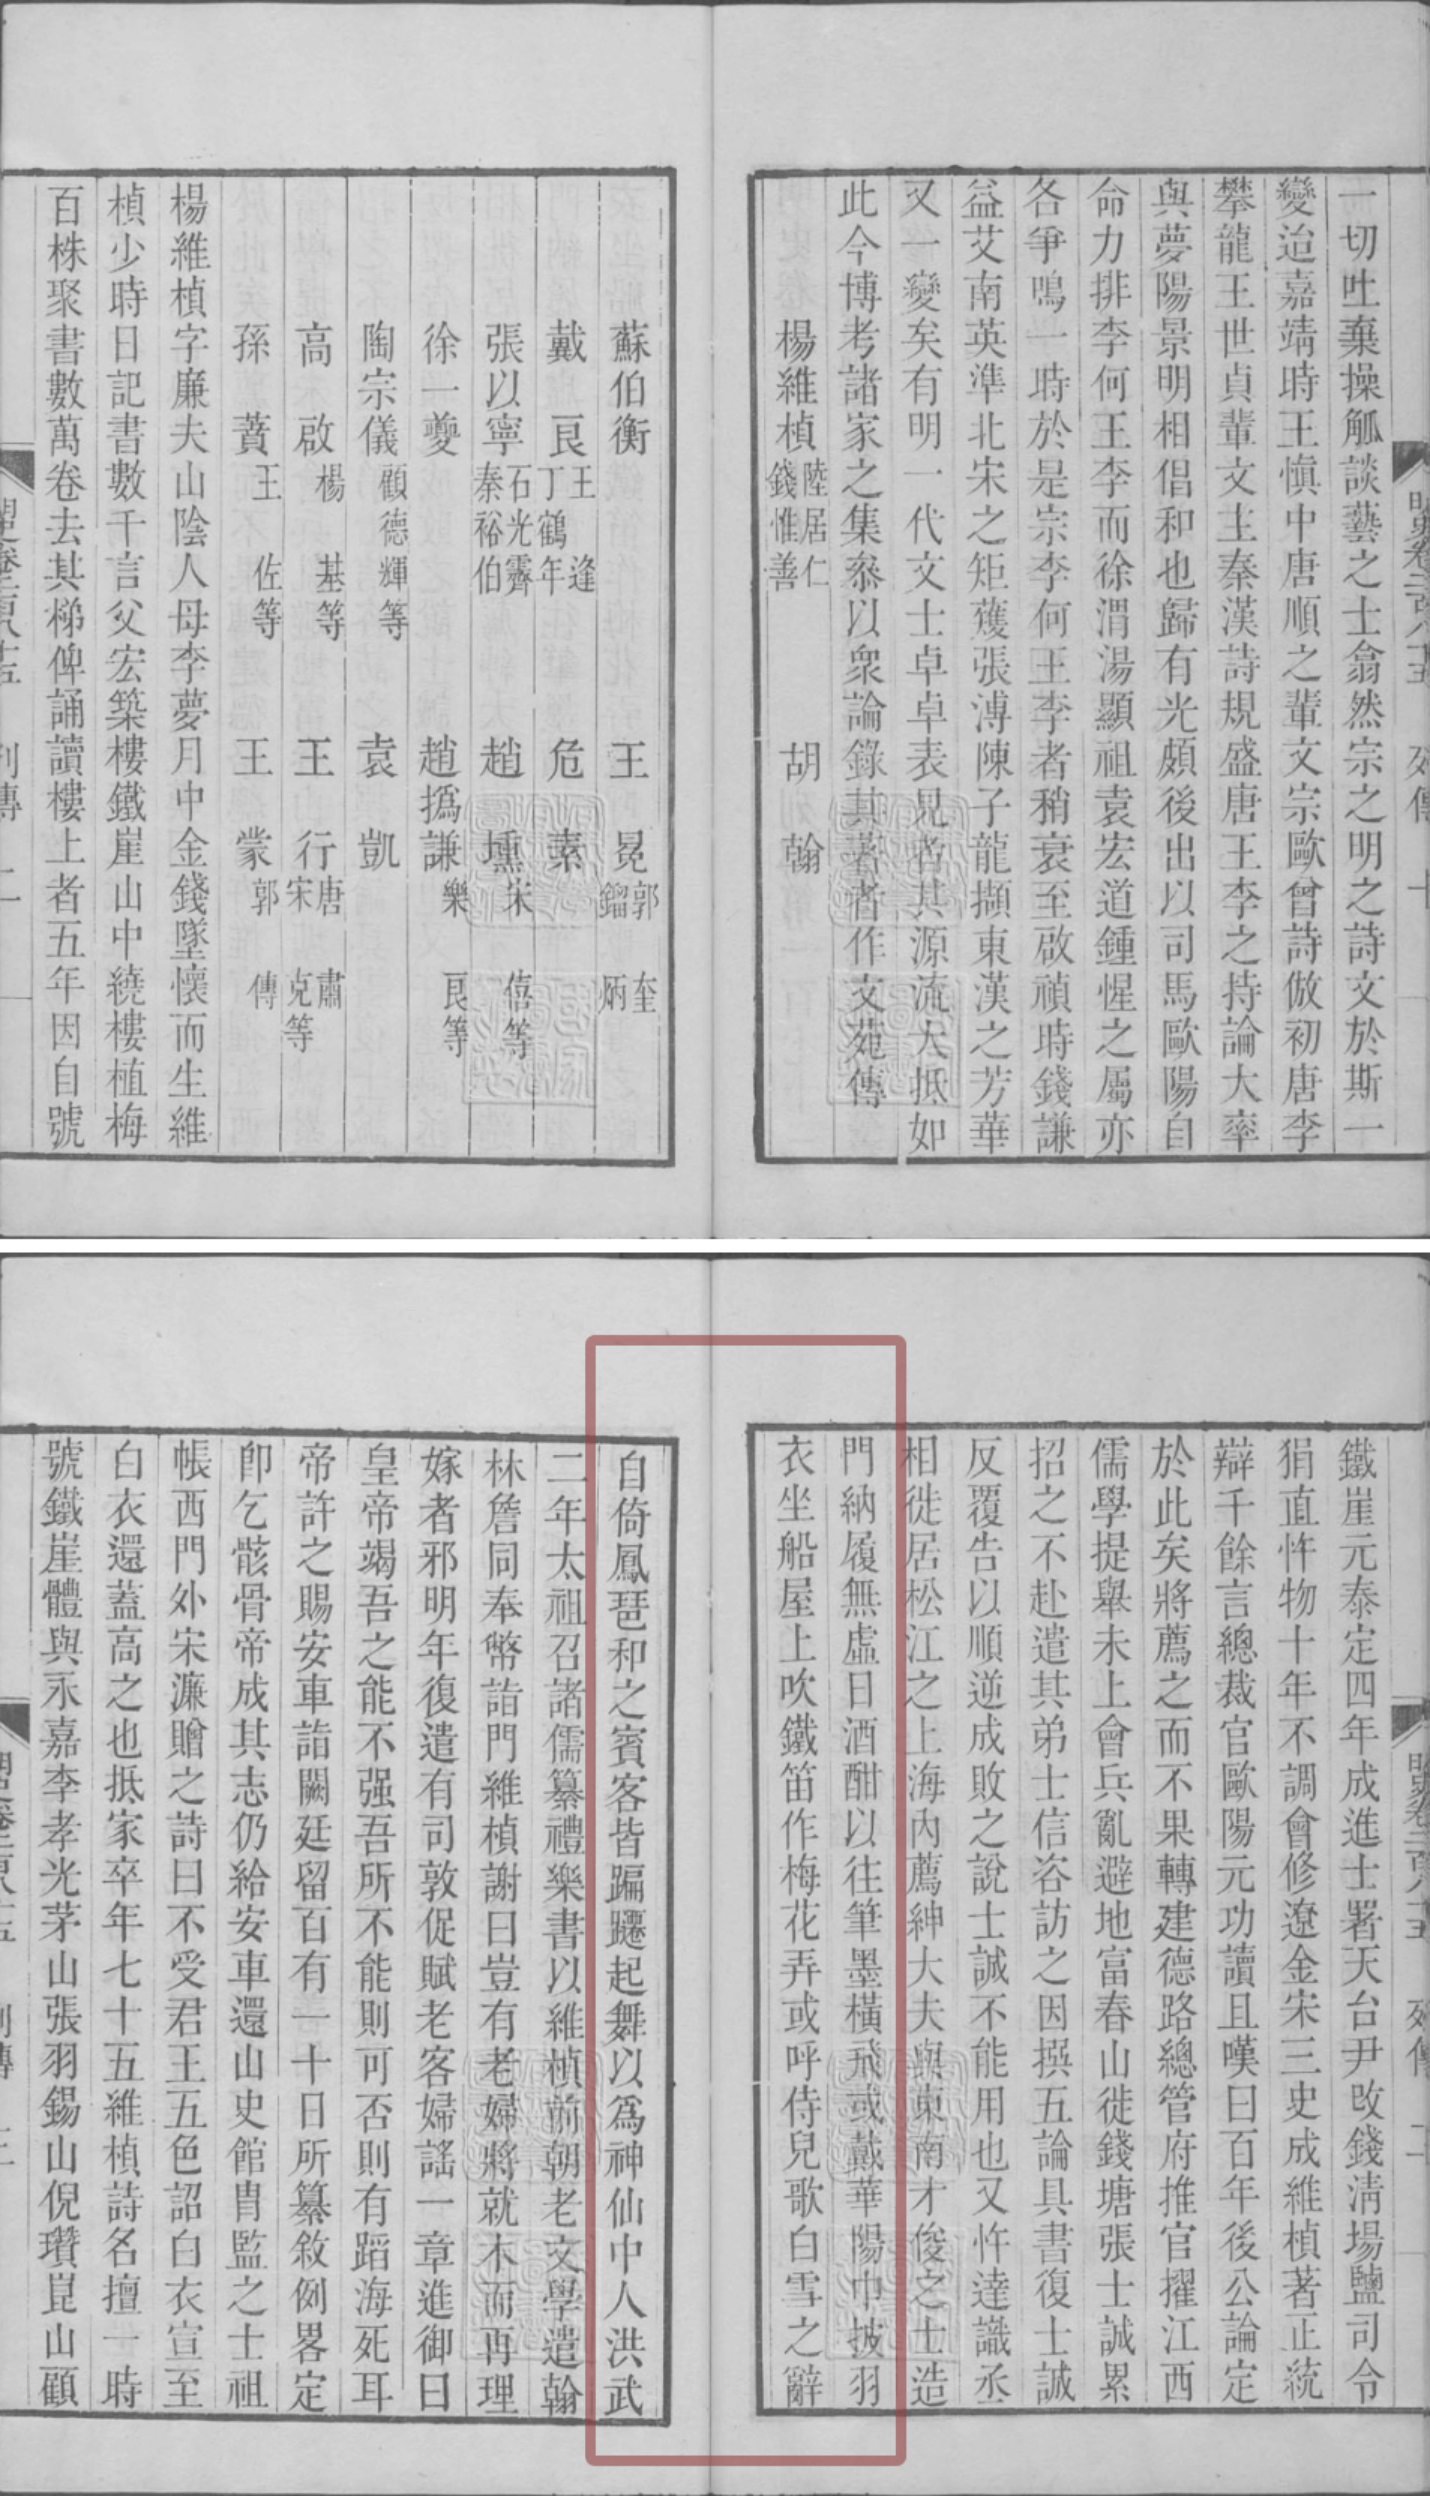 一切吐棄操觚談藝之士翕然宗之明之詩文於斯一
變迨嘉靖時王慎中唐順之輩文宗歐曾詩倣初唐李
攀龍王世貞輩文主秦漢詩規盛唐王李之持論大率
與夢陽景明相倡和也歸有光頗後出以司馬歐陽自
命力排李何王李而徐渭湯顯祖袁宏道鍾惺之屬亦
各爭鳴一時於是宗李何王李者稍衰至啟禎時錢謙
益艾南英準北宋之矩矱張溥陳子龍擷東漢之芳華
又一變矣有明一代文士卓卓表見者其源流大抵如
此今博考諸家之集叅以眾論錄其著者作文苑傳
楊維楨 陸居仁 錢惟善 胡翰
蘇伯衡 王冕 郭奎 鎦炳
戴良 王逢 丁鶴年 危素
張以寧 石光霽 秦裕伯 趙壎 宋僖等
徐一夔 趙撝謙 樂良等
陶宗儀 顧德輝等 袁凱
高啟 楊基等 王行 唐肅 宋克等
孫蕡 王佐等 王蒙 郭傳
楊維楨字廉夫山陰人母李夢月中金錢墜懷而生維
楨少時日記書數千言父宏築樓鐵崖山中繞樓植梅
百株聚書數萬卷去其梯俾誦讀樓上者五年因自號
鐵崖元泰定四年成進士署天台尹改錢清場鹽司令
狷直忤物十年不調會修遼金宋三史成維楨著正統
辯千餘言總裁官歐陽元功讀且嘆曰百年後公論定
於此矣將薦之而不果轉建德路總管府推官擢江西
儒學提舉未上會兵亂避地富春山徙錢塘張士誠累
招之不赴遣其弟士信咨訪之因撰五論具書復士誠
反覆告以順逆成敗之說士誠不能用也又忤達識丞
相徙居松江之上海內薦紳大夫與東南才俊之士造
門納履無虛日酒酣以往筆墨橫飛或戴華陽巾披羽
衣坐船屋上吹鐵笛作梅花弄或呼侍兒歌白雪之辭
自倚鳳琶和之賓客皆蹁躚起舞以爲神仙中人洪武
二年太祖召諸儒纂禮樂書以維楨前朝老文學遣翰
林詹同奉幣詣門維楨謝曰豈有老婦將就木而再理
嫁者邪明年復遣有司敦促賦老客婦謠一章進御曰
皇帝竭吾之能不强吾所不能則可否則有蹈海死耳
帝許之賜安車詣闕廷留百有一十日所纂敘例畧定
卽乞骸骨帝成其志仍給安車還山史館胄監之士祖
帳西門外宋濂贈之詩曰不受君王五色詔白衣宣至
白衣還蓋高之也抵家卒年七十五維楨詩名擅一時
號鐵崖體與永嘉李孝光茅山張羽錫山倪瓚崑山顧